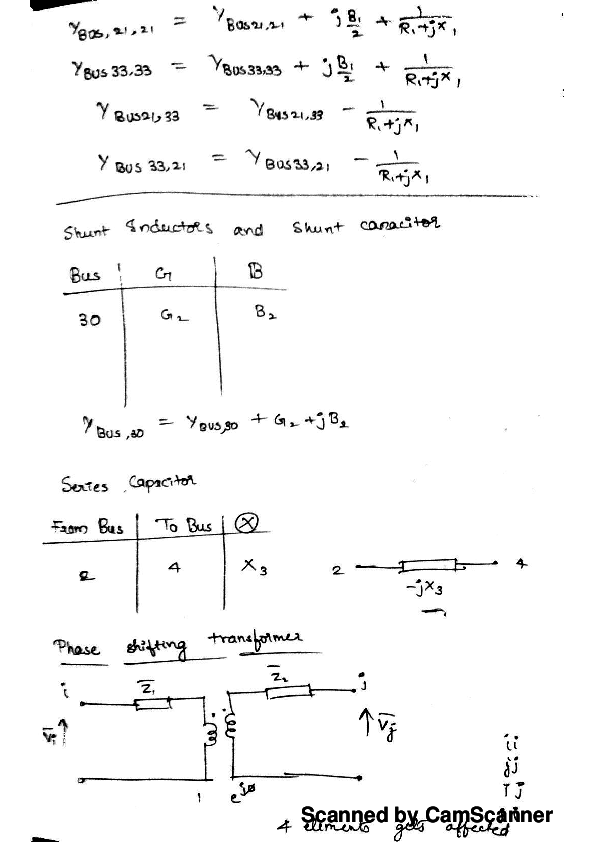 Y_Bus,21,21 = Y_Bus21,21 + j B₁/2 + 1/(R₁+jX₁)
Y_Bus33,33 = Y_Bus33,33 + j B₁/2 + 1/(R₁+jX₁)
Y_Bus21,33 = Y_Bus21,33 − 1/(R₁+jX₁)
Y_Bus33,21 = Y_Bus33,21 − 1/(R₁+jX₁)
Shunt Inductors and Shunt capacitor
Bus G B
30 G₂ B₂
Y_Bus,30 = Y_Bus,30 + G₂ + jB₂
Series Capacitor
From Bus To Bus X
2 4 X₃
2 4
-jX₃
Phase shifting transformer
i Z̅₁ Z̅₂ j
V̅i V̅j
ii
jj
ij
1 e^jø
Scanned by CamScanner
4 elements gets affected